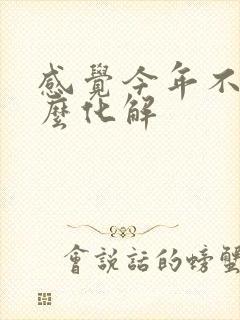 感覺今年不
麼化解
會說話的螃蟹